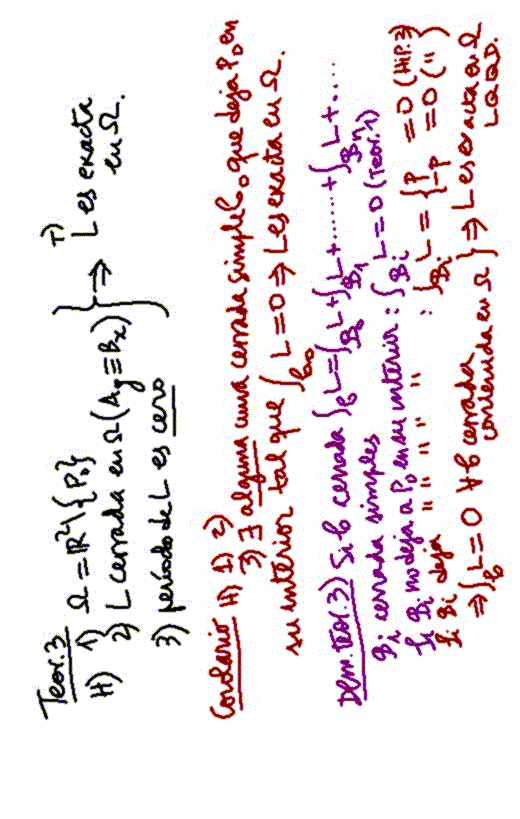 Teor. 3
H) 1) Ω = ℝ² \ {P₀}
2) L cerrada en Ω (A_y ≡ B_x) } ⇒ T) L es exacta en Ω.
3) período de L es cero
Corolario H) 1) 2)
3) ∃ alguna curva cerrada simple C₀ que deja P₀ en
su interior tal que ∫_C₀ L = 0 ⇒ L es exacta en Ω.
Dem. Teor. 3) Si C cerrada ∫_C L = ∫_B₀ L + ∫_B₁ L + ...... + ∫_Bₙ L + ....
B_i cerrada simples
Si B_i no deja a P₀ en su interior : ∫_B_i L = 0 (Teor. 1)
Si B_i deja " " " " " : ∫_B_i L = { P = 0 (HiP. 3) -P = 0 ( " )
⇒ ∫_C L = 0 ∀ C cerrada contenida en Ω } ⇒ L es exacta en Ω
LQQD.